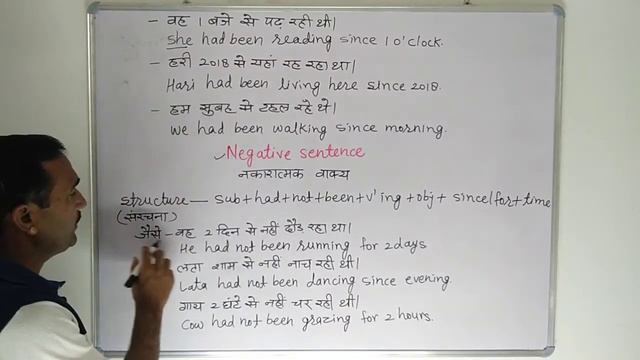 - वह 1 बजे से पढ़ रही थी।
She had been reading since 1 o'clock.
- हरी 2018 से यहां रह रहा था।
Hari had been living here since 2018.
- हम सुबह से टहल रहे थे।
We had been walking since morning.
Negative sentence
नकारात्मक वाक्य
structure — sub+had+not+been+v'ing+obj+since/for+time
(संरचना)
जैसे - वह 2 दिन से नहीं दौड़ रहा था।
He had not been running for 2 days
लता शाम से नहीं नाच रही थी।
Lata had not been dancing since evening.
गाय 2 घंटे से नहीं चर रही थी।
Cow had not been grazing for 2 hours.